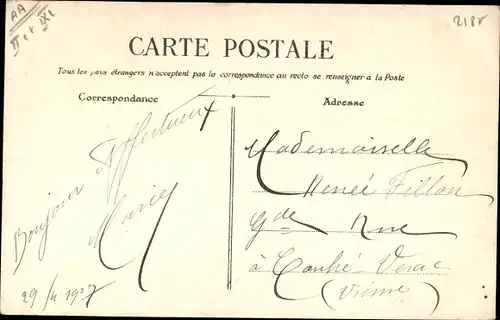 AA
II et IXe
CARTE POSTALE
Tous les pays étrangers n'acceptent pas la correspondance au recto se renseigner à la Poste
Correspondance
Bonjour Affectueux
Marie
29/4 1907
Adresse
Mademoiselle
Renée Fillon
Gde Rue
à Couhé-Verac
(Vienne)